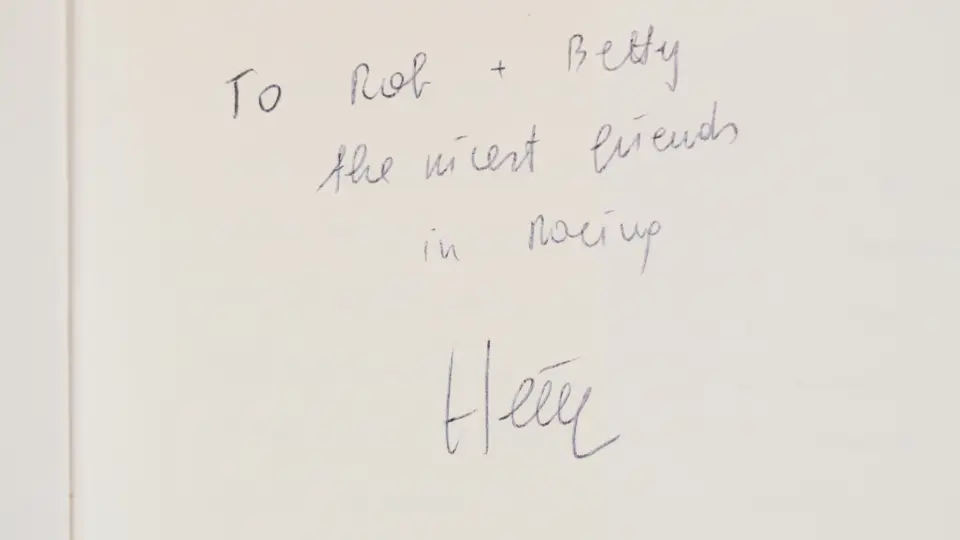 To Rob + Betty
the nicest friends
in Racing